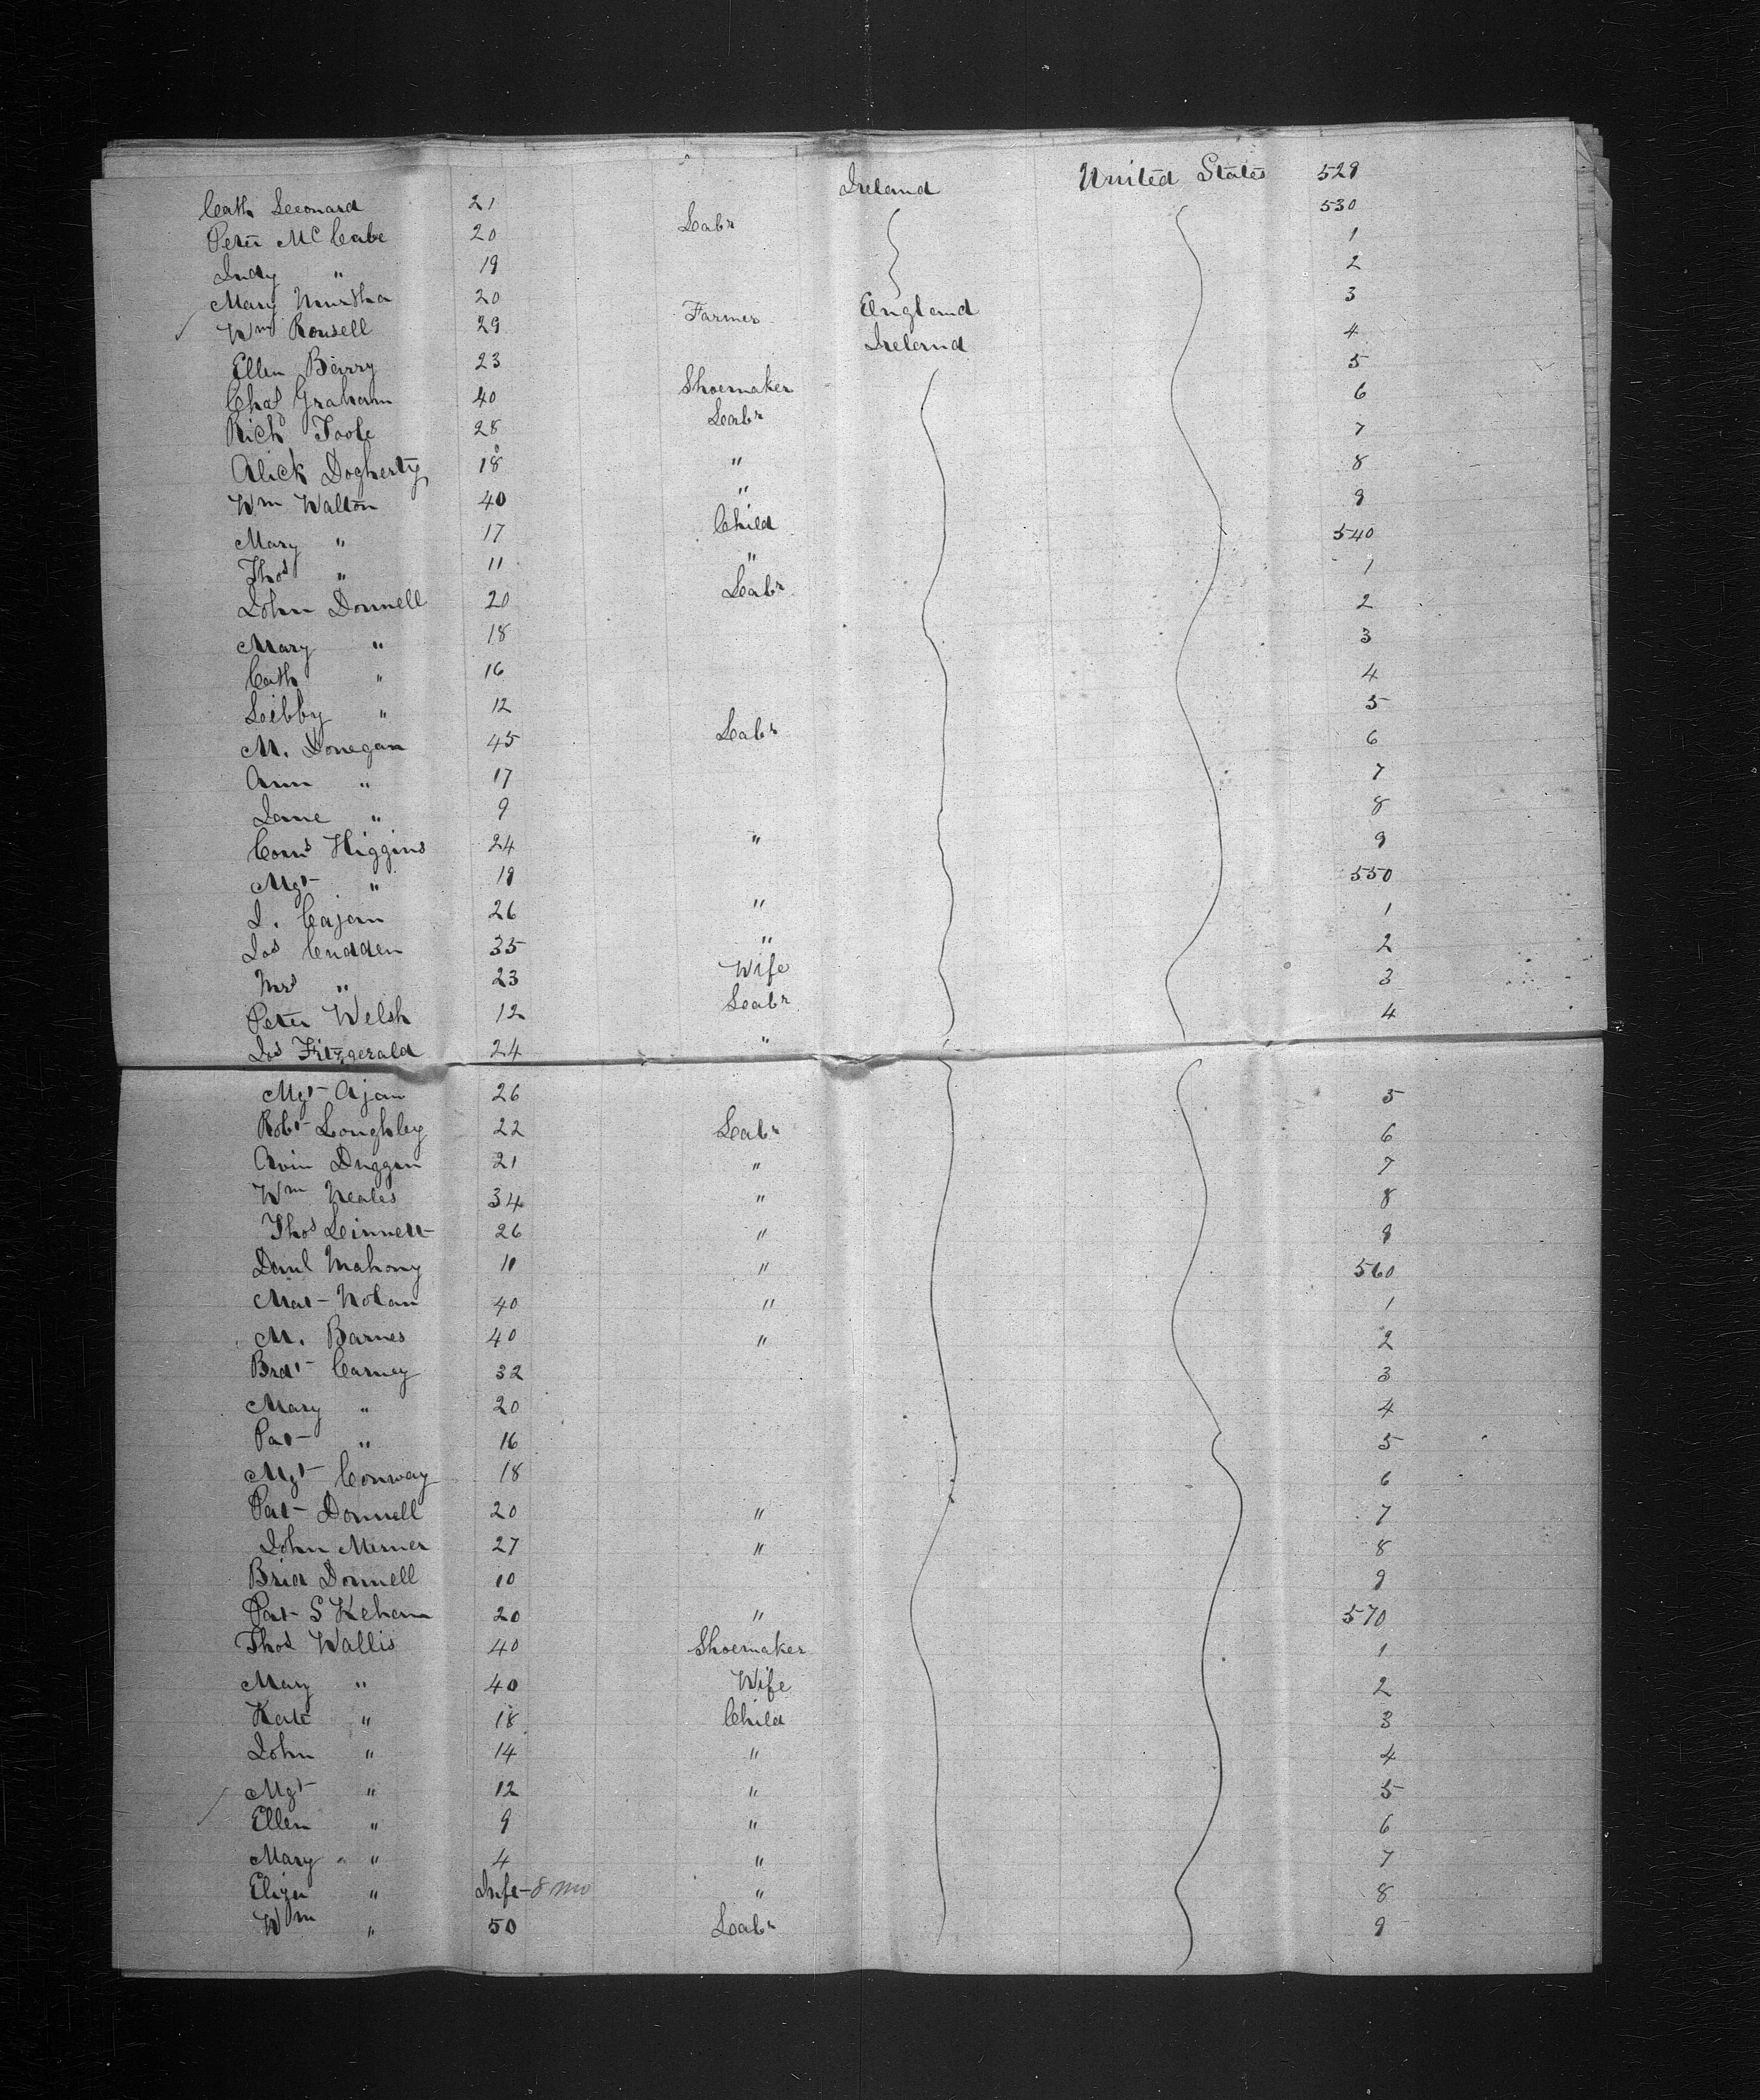 Cath Leeonard 21 Ireland United States 529
Peter McCabe 20 Labr 530
Judy " 19 1
Mary Murtha 20 2
Wm Rousell 29 Farmer England 3
Ellen Barry 23 Ireland 4
Chas Graham 40 Shoemaker 5
Richd Toole 28 Labr 6
Alick Dogherty 18 " 7
Wm Walton 40 " 8
Mary " 17 Child 9
Thos " 11 " 540
John Donnell 20 Labr 1
Mary " 18 2
Cath " 16 3
Libby " 12 4
M. Donegan 45 Labr 5
Ann " 17 6
Jane " 9 7
Corns Higgins 24 " 8
Mgt " 19 9
J. Cajan 26 " 550
Jos Cudden 35 " 1
Mrs " 23 Wife 2
Peter Welsh 12 Labr 3
Jas Fitzgerald 24 " 4
Mgt Ajan 26 5
Robt Loughley 22 Labr 6
Avin Duggan 21 " 7
Wm Neales 34 " 8
Thos Linnett 26 " 9
Danl Mahony 10 " 560
Mat Nolan 40 " 1
M. Barnes 40 " 2
Bradt Carney 32 3
Mary " 20 4
Pat " 16 5
Mgt Conway 18 6
Pat Donnell 20 " 7
John Merner 27 " 8
Brid Donnell 10 9
Pat S Kehan 20 " 570
Thos Wallis 40 Shoemaker 1
Mary " 40 Wife 2
Kate " 18 Child 3
John " 14 " 4
Mgt " 12 " 5
Ellen " 9 " 6
Mary " 4 " 7
Eliza " Inft 8 mo " 8
Wm " 50 Labr 9